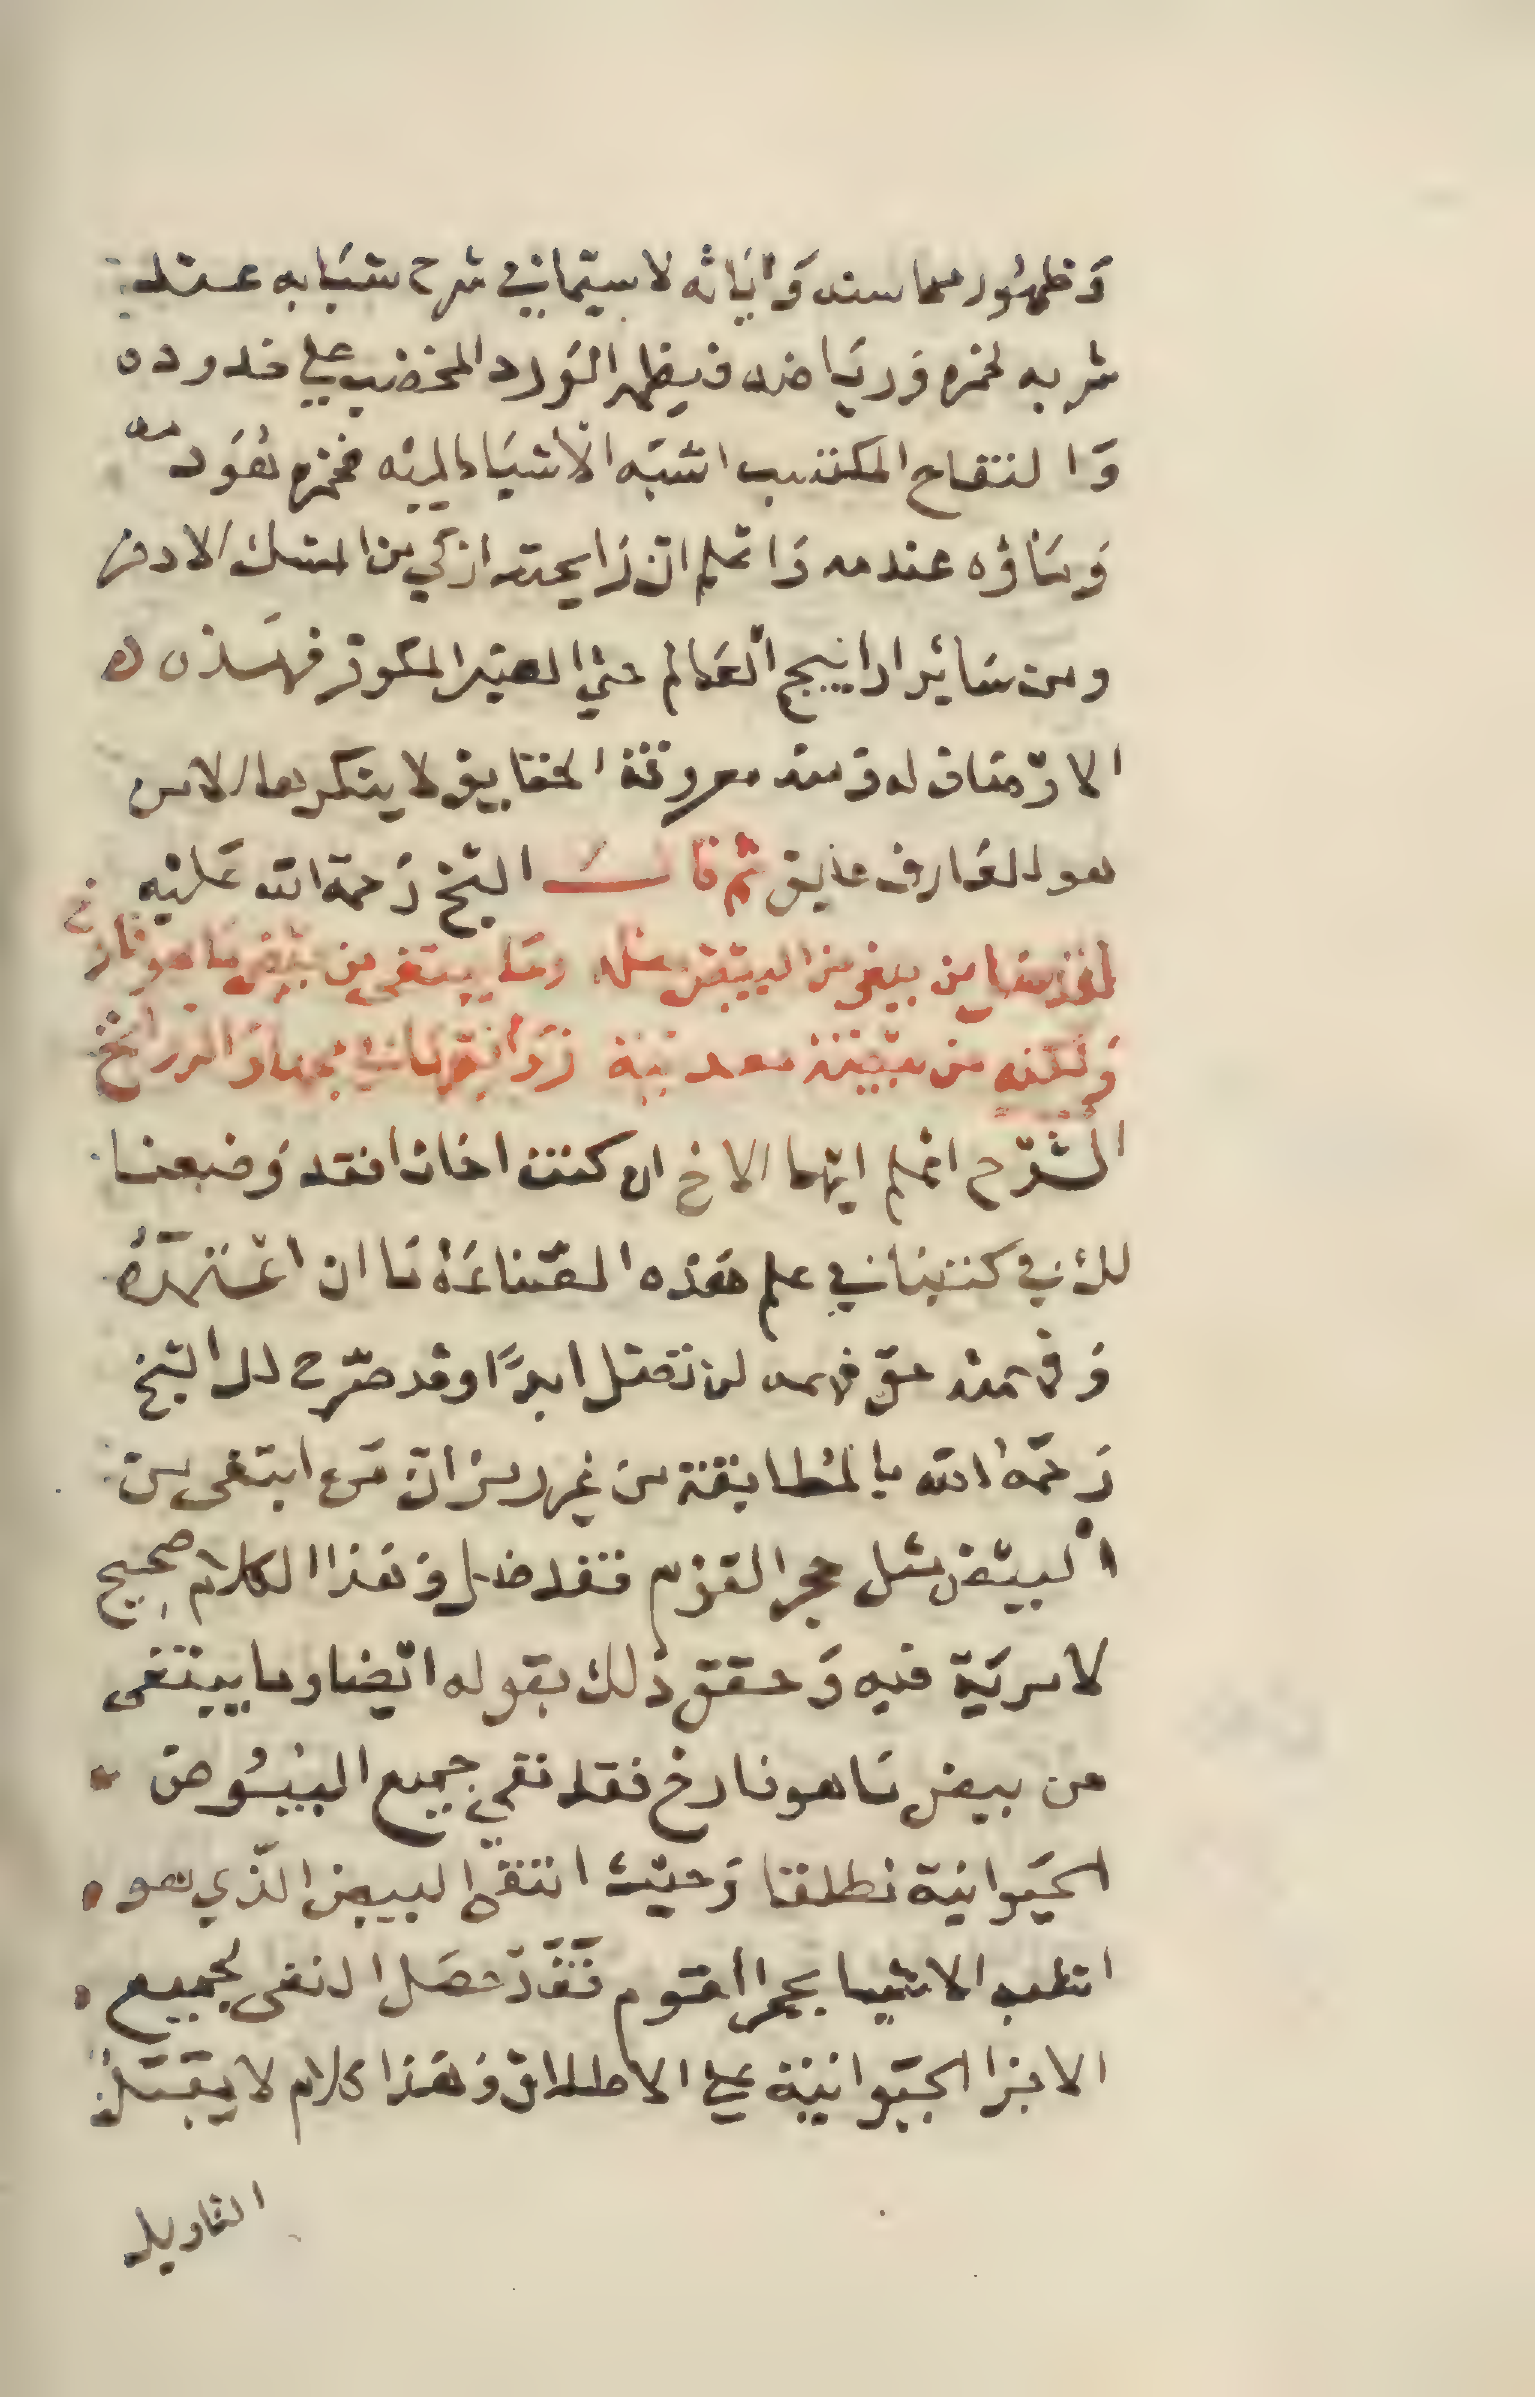 وَظهوُر محاسنه وَاٰيَاته لا سيّما في شرح شبَابه عند
شربه لخمره وَريَاضه فيظهر الوَرد المخضب على خدوده
وَا لتفاح المكتسب اشبَه الاشيَا بالميَه فخمره نقوَد
وَسَاؤه عندمه وَاعلم انّ رَايحته ازكي من المسك الادفر
ومن سَائر اراييج العَالم حتى العنبر المكوفر فهَذه
الاوصَاف لمن معروفة الحقايق لا ينكرها الامن
هو العَارف عايق ثم قالَ الشيخ رَحمة الله عَليْه
من بيض من البيض مثل ومَا يبتغى من بيض مَا هو نازخ
وَلكنه من بيضة معدنية
الشرح اعْلم ايّها الاخ ان كنت اخانا فقد وَضعنا
لك في كتبنا في علم هَذه الصّناعَة مَا ان اعتبرته
وَفهمته حقّ فهمه لن تضل ابدًا وقد صرّح لك الشيخ
رَحمَهُ الله بالمُطابقة من غير رمز انّ مَن ابتغى من
البيض مثل حجر القوْم فقد ضل وَهَذا الكلام صحِيح
لا مريَة فيه وَحقق ذلك بقوله ايْضا وما يبتغى
من بيض مَا هو نارخ فقد نفي جميع البيُوض
الحيَوانيَة مطلقا وَحيْث انتفى البيض الذّي هو
اطلب الاشيا بحجر القوم فَقَدْ حصَل النفى لجميع
الاجزا الحيَوانيَة على الاطلاق وَهَذا كلام لا يقبَل
التاويل